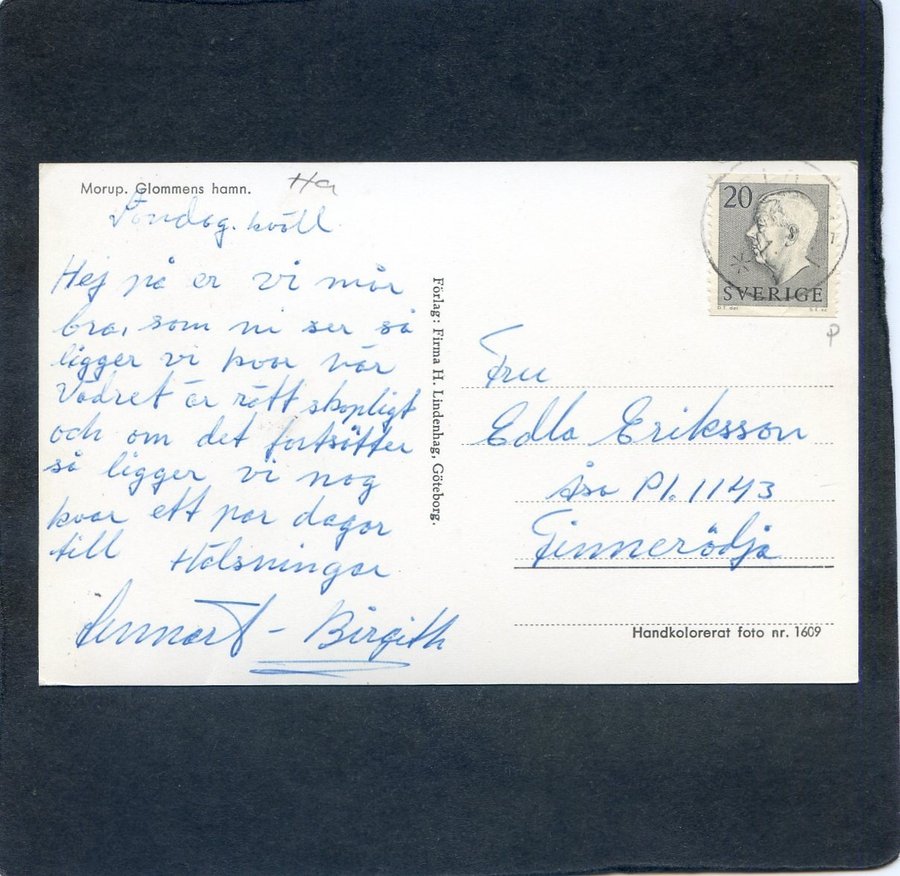 Morup. Glommens hamn.
Ha
Söndag. kväll
Hej på er vi mår
bra, som ni ser så
ligger vi kvar här
Vädret är rätt skapligt
och om det fortsätter
så ligger vi nog
kvar ett par dagar
till Hälsningar
Lennart - Birgith
Förlag: Firma H. Lindenhag, Göteborg.
20
SVERIGE
P
Fru
Edla Eriksson
Åsa Pl. 1143
Finnerödja
Handkolorerat foto nr. 1609